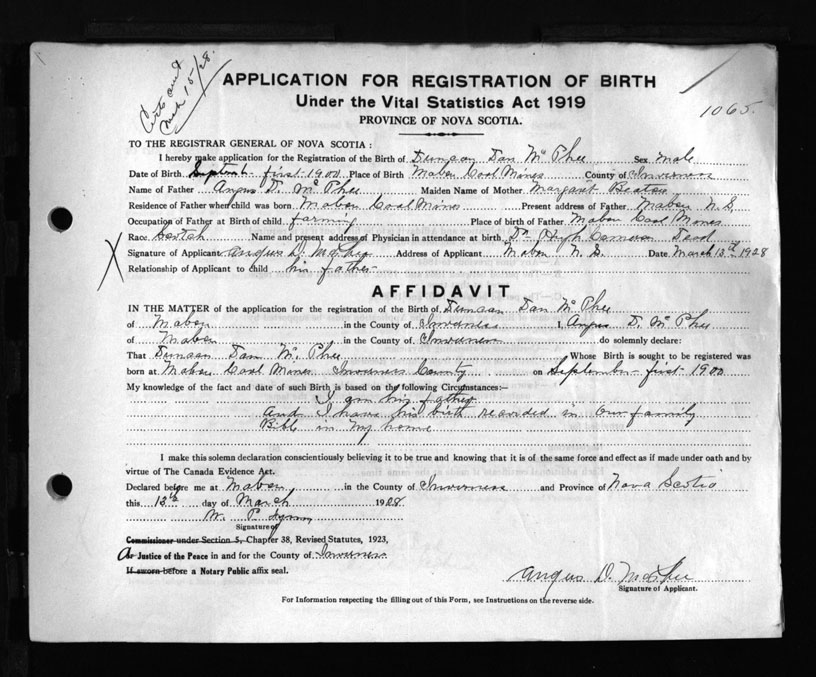 Certs and
Mch 15/28.
APPLICATION FOR REGISTRATION OF BIRTH
Under the Vital Statistics Act 1919
1065.
PROVINCE OF NOVA SCOTIA.
TO THE REGISTRAR GENERAL OF NOVA SCOTIA :
I hereby make application for the Registration of the Birth of Duncan Dan McPhee Sex Male
Date of Birth September first 1900 Place of Birth Mabou Coal Mines County of Inverness
Name of Father Angus D. McPhee Maiden Name of Mother Margaret Beaton
Residence of Father when child was born Mabou Coal Mines Present address of Father Mabou N.S.
Occupation of Father at Birth of child farming Place of birth of Father Mabou Coal Mines
Race Scotch Name and present address of Physician in attendance at birth Dr Hugh Cameron Dead
X Signature of Applicant Angus D. McPhee Address of Applicant Mabou N. S. Date March 13th 1928
Relationship of Applicant to child his father
AFFIDAVIT
IN THE MATTER of the application for the registration of the Birth of Duncan Dan McPhee
of Mabou in the County of Inverness I, Angus D. McPhee
of Mabou in the County of Inverness do solemnly declare:
That Duncan Dan McPhee Whose Birth is sought to be registered was
born at Mabou Coal Mines Inverness County on September first 1900
My knowledge of the fact and date of such Birth is based on the following Circumstances:—
I am his father
And I have his birth recorded in our family
Bible in my home
I make this solemn declaration conscientiously believing it to be true and knowing that it is of the same force and effect as if made under oath and by
virtue of The Canada Evidence Act.
Declared before me at Mabou in the County of Inverness and Province of Nova Scotia
this 13th day of March 1928
W. P.
Signature of
Commissioner under Section 5, Chapter 38, Revised Statutes, 1923,
A Justice of the Peace in and for the County of Inverness
If sworn before a Notary Public affix seal.
Angus D. McPhee
Signature of Applicant.
For Information respecting the filling out of this Form, see Instructions on the reverse side.